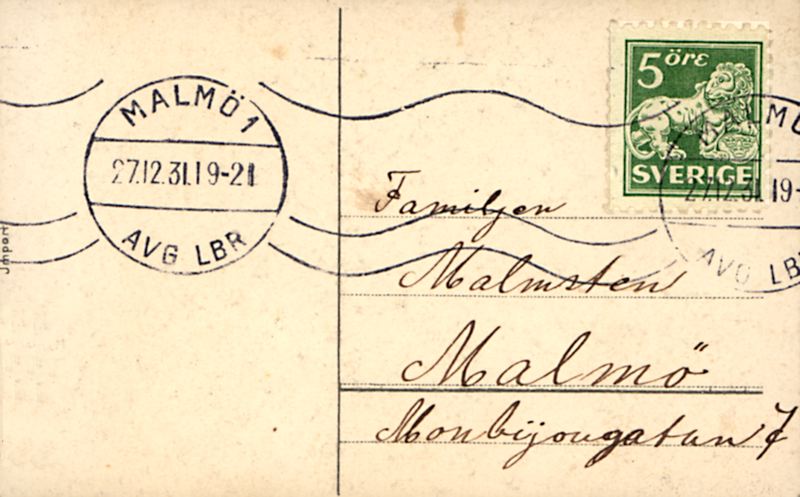 MALMÖ 1
27.12.31.19-21
AVG LBR
5 öre
SVERIGE
MALMÖ
27.12.31.19-
AVG LB
Familjen
Malmsten
Malmö
Monbijougatan 7
Import